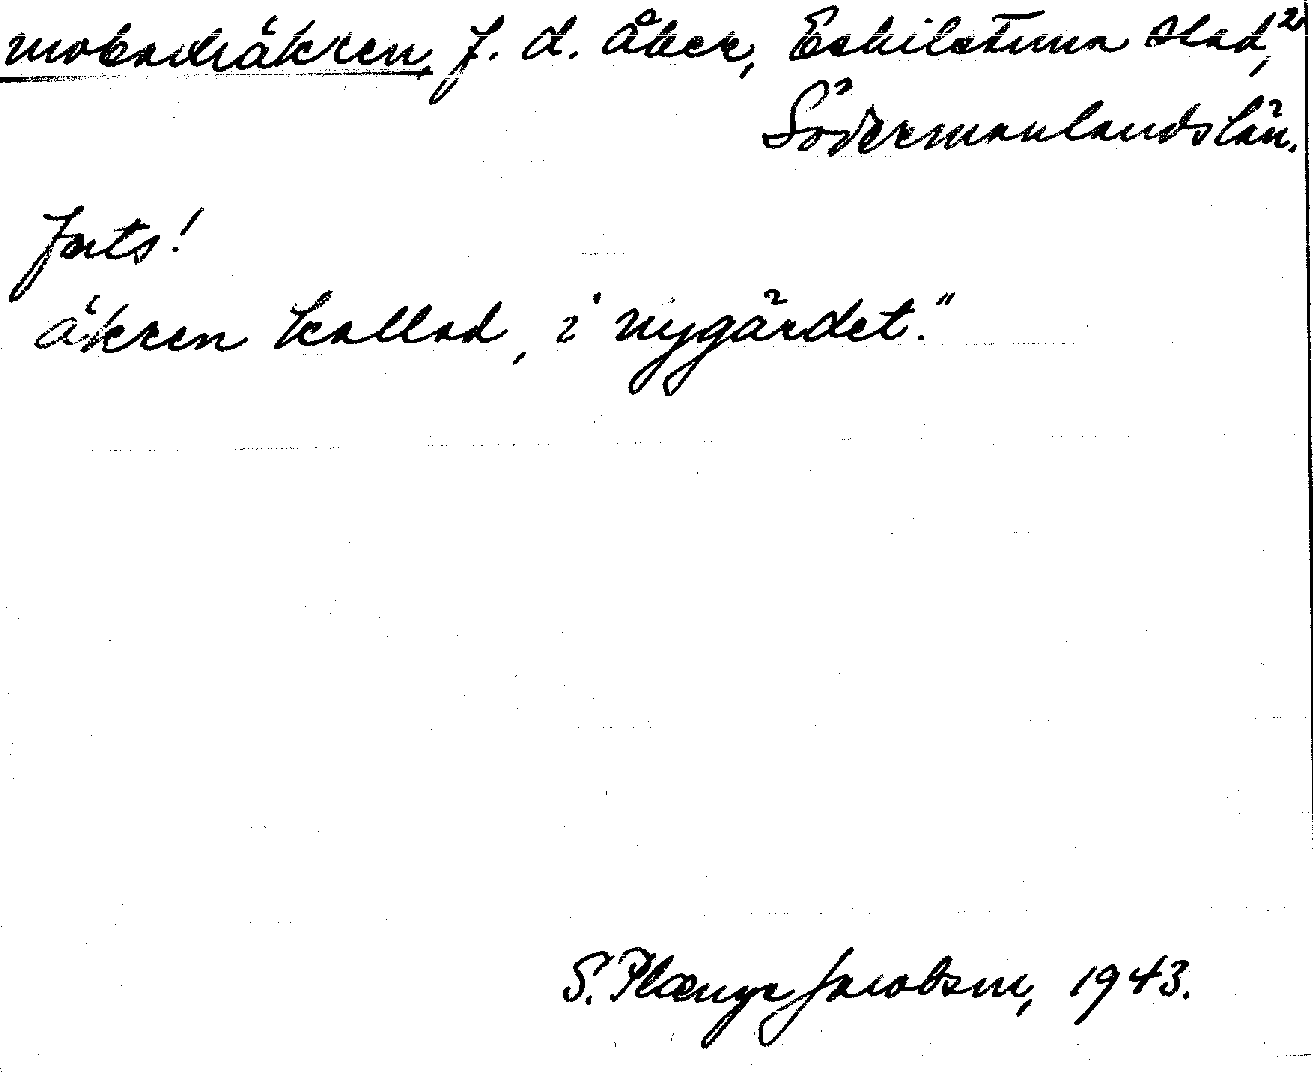 mobackåkren, f. d. åker, Eskilstuna stad, 2)
Södermanlandslän.
forts!
åkren kallad „i nygärdet."
S. Plænge Jacobson, 1943.